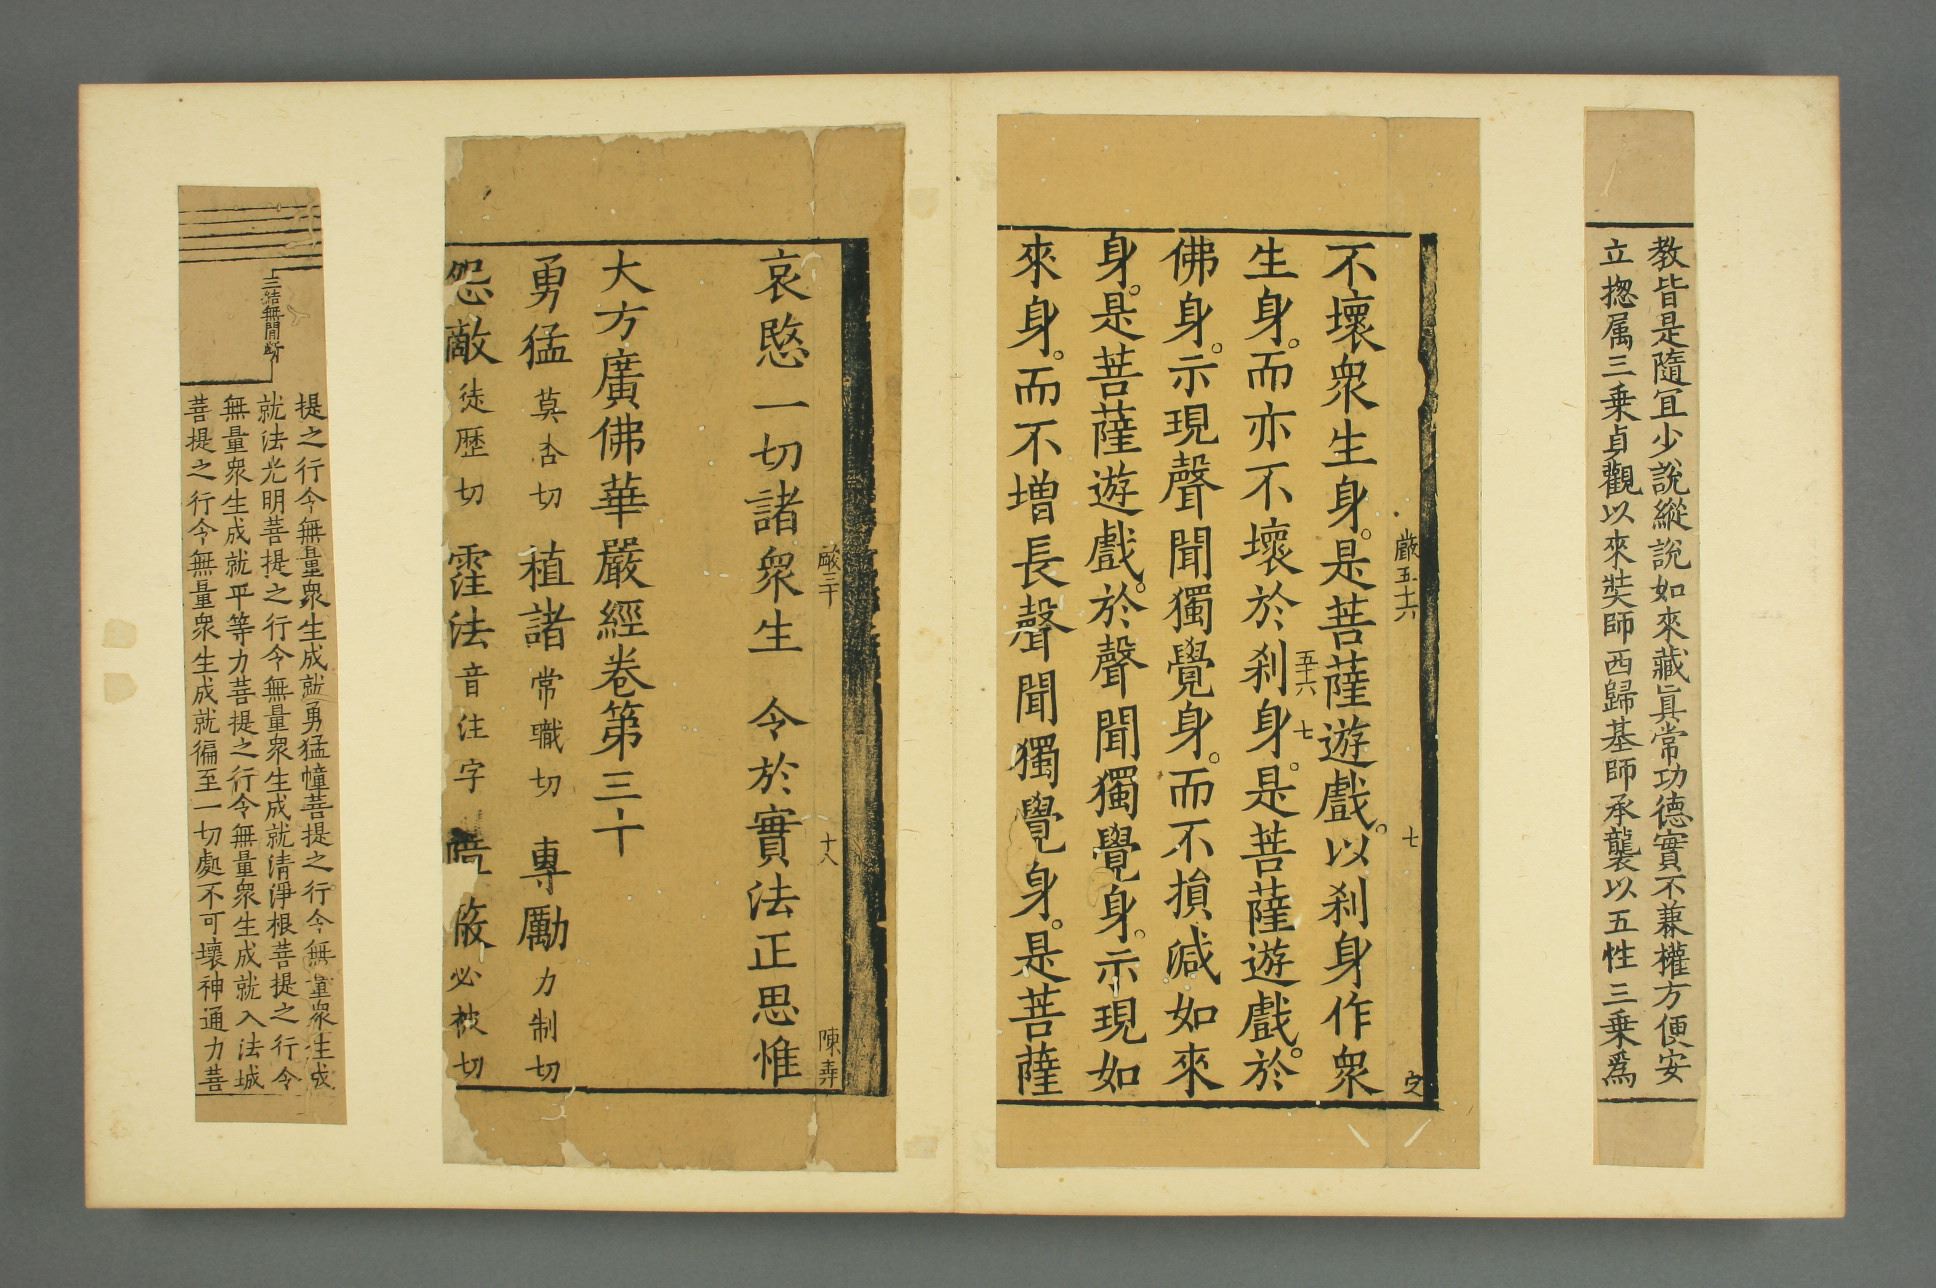 教皆是隨冝少說縱說如來藏真常功德實不兼權方便安
立揔属三乗貞觀以來奘師西歸基師承襲以五性三乗爲
嚴五十六
七
不壞衆生身。是菩薩遊戲。以刹身作衆
生身。而亦不壞於刹身。是菩薩遊戲。於
五十六 七
佛身。示現聲聞獨覺身。而不損減如來
身。是菩薩遊戲。於聲聞獨覺身。示現如
來身。而不增長聲聞獨覺身。是菩薩
嚴三十
十八
陳
哀愍一切諸衆生 令於實法正思惟
大方廣佛華嚴經卷第三十
勇猛莫杏切 植諸常職切 專勵力制切
怨敵徒歷切 霔法音注字 必被切
三結無間斷
提之行令無量衆生成就勇猛幢菩提之行令無量衆生成
就法光明菩提之行令無量衆生成就清淨根菩提之行令
無量衆生成就平等力菩提之行令無量衆生成就入法城
菩提之行令無量衆生成就徧至一切處不可壞神通力菩